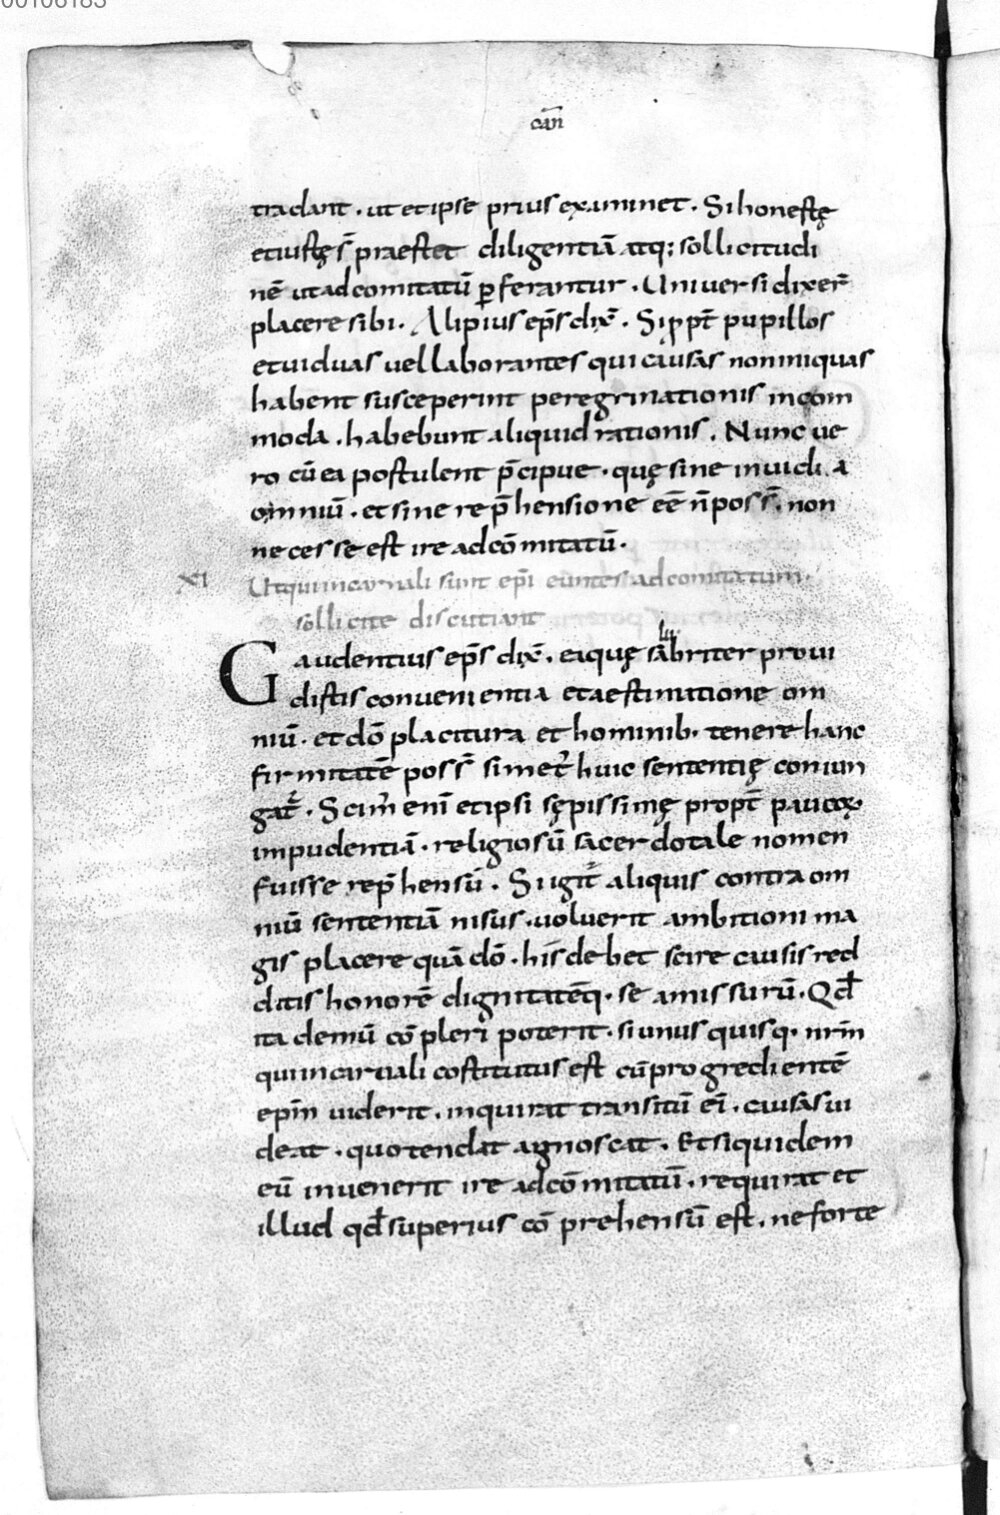 00106183
cañ
tradant . ut et ipse prius examinet . Si honestę
et iustę s̄ praestet diligentiā atq; sollicitudi
nē ut ad comitatū ꝑferantur . Uniuersi dixer̄
placere sibi . Alipius ep̄s dix̄ . Si ꝓpt̄ pupillos
et uiduas uel laborantes qui causas non iniquas
habent susceperint peregrinationis incom
moda . habebunt aliquid rationis . Nunc ue
ro cū ea postulent p̄cipue . quę sine inuidia
omniū . et sine rep̄hensione eē n̄ poss̄ . non
necesse est ire ad cōmitatū .
XI Ut qui in canali sunt ep̄i euntes ad comitatum .
sollicite discutiant
Gaudentius ep̄s dix̄ . eaquę salubriter proui
distis conuenientia et aestimatione om
niū . et dō placitura et hominib. tenere hanc
firmitatē poss̄ si met̄ huic sententię coniun
gat̄ . Scim̄ enī et ipsi sępissimę propt̄ paucoꝝ
impudentiā . religiosū sacerdotale nomen
fuisse rep̄hensū . Si igit̄ aliquis contra om
niū sententiā nisus . uoluerit ambitioni ma
gis placere quā dō . his debet scire causis red
ditis honorē dignitatēq. se amissurū . Qđ
ita demū cōpleri poterit . si unus quisq. nr̄m
qui in canali costitutus est cū progredientē
ep̄m uiderit . inquirat transitū ei . causas ui
deat . quo tendat agnoscat . Et siquidem
eū inuenerit ire ad cōmitatū . requirat et
illud qđ superius cōprehensū est . ne forte